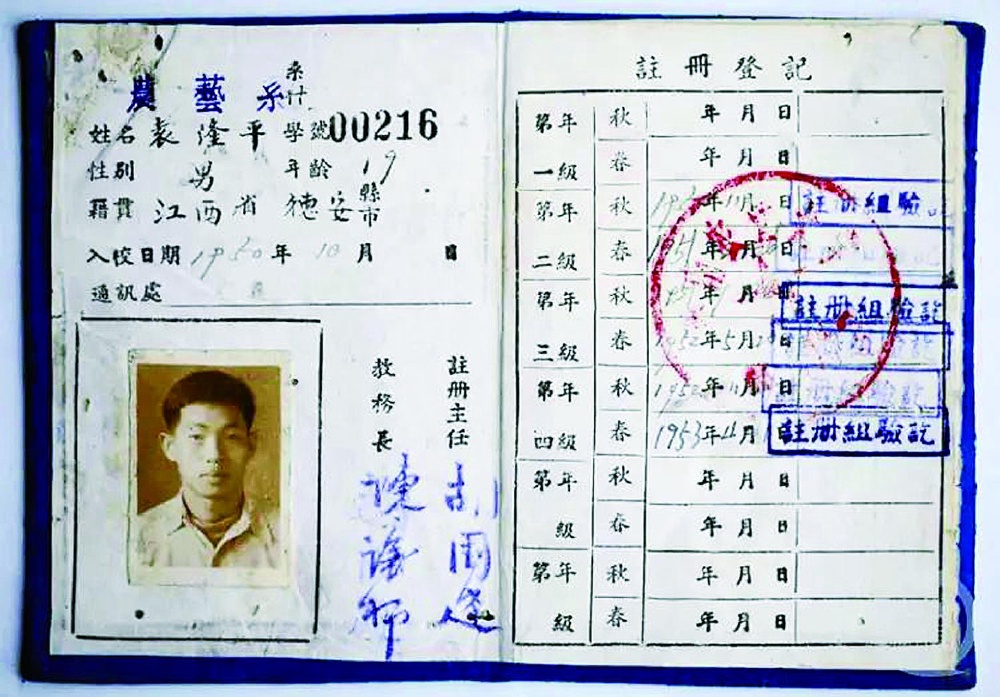 農藝系 系什
姓名 袁隆平 學號 00216
性別 男 年齡 19
籍貫 江西省 德安縣市
入校日期 1950年10月 日
通訊處
註冊主任
教務長
註冊登記
第年 秋 年月日
一級 春 年月日
第年 秋 年11月日 註冊組驗訖
二級 春 1951年月日 註冊組驗訖
第年 秋 年月日 註冊組驗訖
三級 春 1952年5月日 註冊組驗訖
第年 秋 1952年月 註冊組驗訖
四級 春 1953年4月 註冊組驗訖
第年 秋 年月日
級 春 年月日
第年 秋 年月日
級 春 年月日